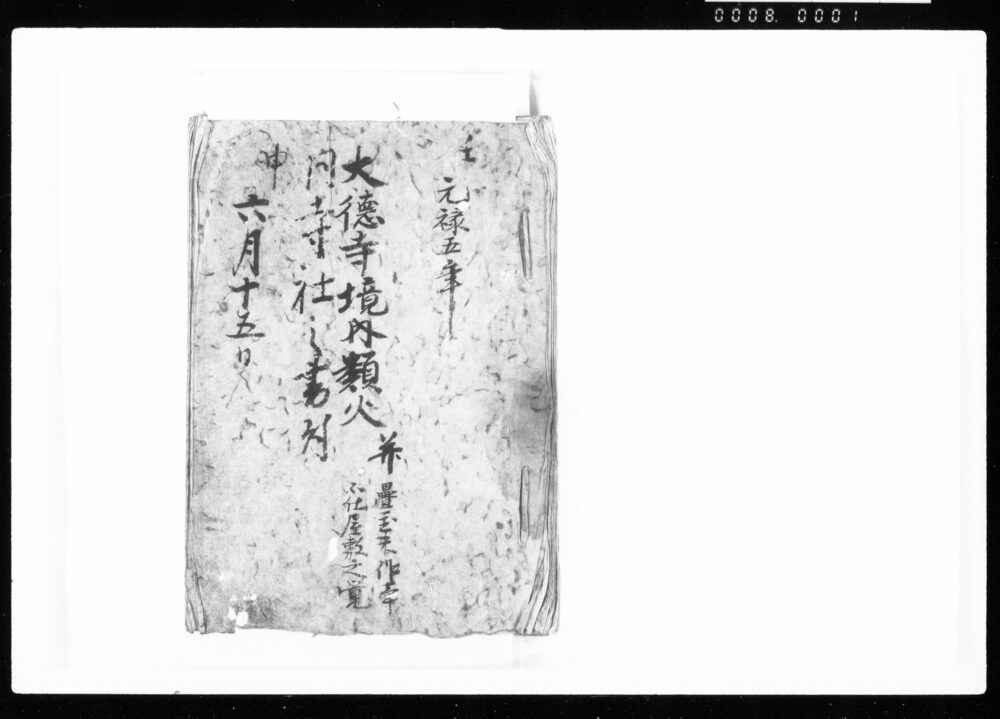 0008. 0001
壬
元禄五年
大徳寺境内類火
同寺社之書列
并
疊玉未作
不仕屋敷之覚
申
六月十五日